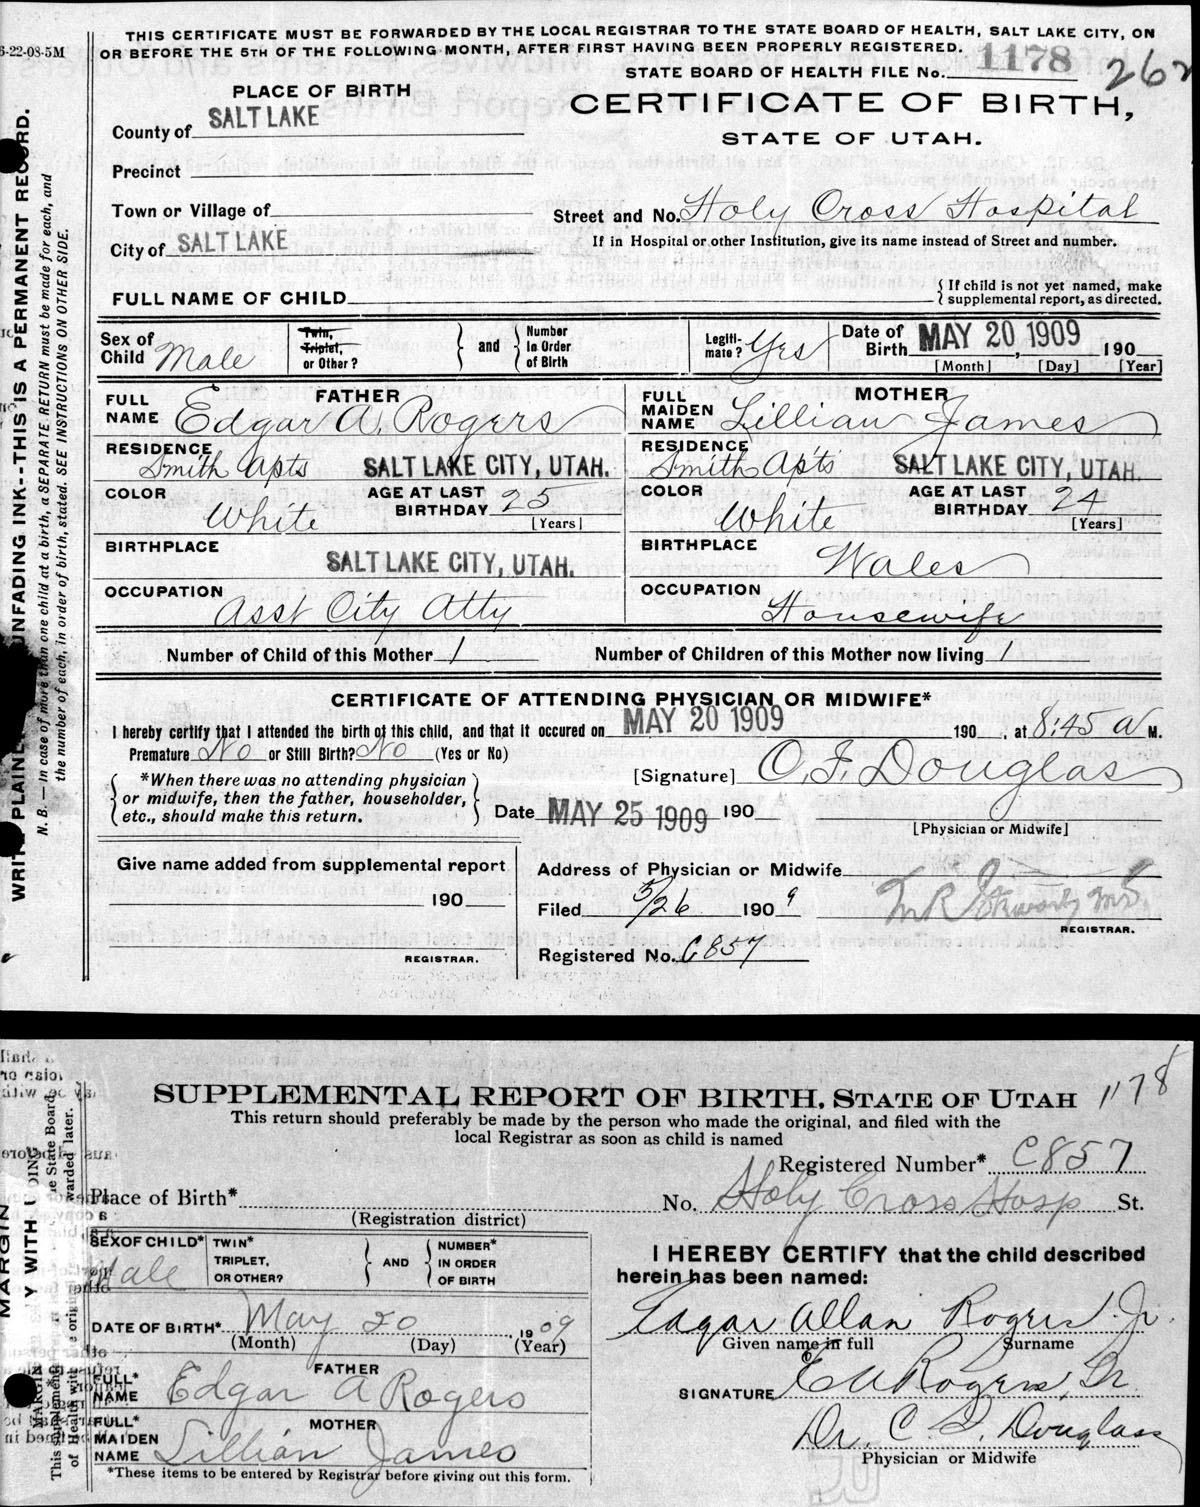 6-22-08-5M
THIS CERTIFICATE MUST BE FORWARDED BY THE LOCAL REGISTRAR TO THE STATE BOARD OF HEALTH, SALT LAKE CITY, ON
OR BEFORE THE 5TH OF THE FOLLOWING MONTH, AFTER FIRST HAVING BEEN PROPERLY REGISTERED.
STATE BOARD OF HEALTH FILE No. 1178
262
PLACE OF BIRTH
CERTIFICATE OF BIRTH,
STATE OF UTAH.
County of SALT LAKE
Precinct
Town or Village of
Street and No. Holy Cross Hospital
City of SALT LAKE
If in Hospital or other Institution, give its name instead of Street and number.
FULL NAME OF CHILD
{ If child is not yet named, make
supplemental report, as directed.
Sex of Child Male
Twin, Triplet, or Other?
and
Number In Order of Birth
Legitimate? Yes
Date of Birth MAY 20 1909, 190
[Month] [Day] [Year]
FATHER
FULL NAME Edgar A. Rogers
RESIDENCE Smith Apts SALT LAKE CITY, UTAH.
COLOR White
AGE AT LAST BIRTHDAY 25
[Years]
BIRTHPLACE SALT LAKE CITY, UTAH.
OCCUPATION Asst City Atty
MOTHER
FULL MAIDEN NAME Lillian James
RESIDENCE Smith Apts SALT LAKE CITY, UTAH.
COLOR White
AGE AT LAST BIRTHDAY 24
[Years]
BIRTHPLACE Wales
OCCUPATION Housewife
Number of Child of this Mother 1 Number of Children of this Mother now living 1
CERTIFICATE OF ATTENDING PHYSICIAN OR MIDWIFE*
I hereby certify that I attended the birth of this child, and that it occured on MAY 20 1909 190 , at 8:45 a M.
Premature No or Still Birth? No (Yes or No)
*When there was no attending physician
or midwife, then the father, householder,
etc., should make this return.
[Signature] C. F. Douglas
Date MAY 25 1909 190
[Physician or Midwife]
Give name added from supplemental report
190
REGISTRAR.
Address of Physician or Midwife
Filed 5/26 190 9
REGISTRAR.
Registered No. C857
N. B.—In case of more than one child at a birth, a SEPARATE RETURN must be made for each, and
the number of each, in order of birth, stated. SEE INSTRUCTIONS ON OTHER SIDE.
UNFADING INK--THIS IS A PERMANENT RECORD.
SUPPLEMENTAL REPORT OF BIRTH, STATE OF UTAH
1178
This return should preferably be made by the person who made the original, and filed with the
local Registrar as soon as child is named
Registered Number* C857
Place of Birth*
No. Holy Cross Hosp St.
(Registration district)
SEX OF CHILD* Male
TWIN* TRIPLET, OR OTHER?
AND
NUMBER* IN ORDER OF BIRTH
DATE OF BIRTH* May 20, 1909
(Month) (Day) (Year)
FATHER
FULL* NAME Edgar A Rogers
MOTHER
FULL* MAIDEN NAME Lillian James
*These items to be entered by Registrar before giving out this form.
I HEREBY CERTIFY that the child described
herein has been named:
Edgar Allan Rogers Jr.
Given name in full Surname
SIGNATURE E A Rogers, Sr.
Dr. C. F. Douglass
Physician or Midwife